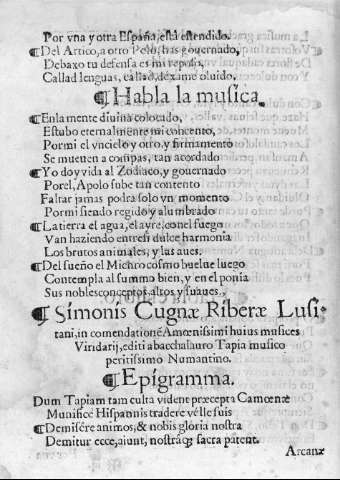 Por vna y otra España, está estendido.
¶Del Artico, a otro Polo, has gouernado,
Debaxo tu defensa es mi reposo,
Callad lenguas, callad, dexame oluido,
¶Habla la musica.
¶En la mente diuina colocado,
Estubo eternalmente mi concento,
Por mi el vn cielo y otro, y firmamento
Se mueuen a compas, tan acordado
¶Yo doy vida al Zodiaco, y gouernado
Por el, Apolo sube tan contento
Faltar jamas podra solo vn momento
Por mi siendo regido y alumbrado
¶La tierra el agua, el ayre, con el fuego
Van haziendo entre si dulce harmonia
Los brutos animales, y las aues.
¶Del sueño el Michro cosmo buelue luego
Contempla al summo bien, y en el ponia
Sus nobles conceptos altos y suaues.
¶Simonis Cugnæ Riberæ Lusi-
tani, in comendationē Amœnissimi huius musices
Viridarij, editi a bacchalauro Tapia musico
peritissimo Numantino.
¶Epigramma.
Dum Tapiam tam culta vident præcepta Camœnæ
Munifice Hispannis tradere velle suis
¶Demisére animos, & nobis gloria nostra
Demitur ecce, aiunt, nostráq; sacra patent.
Arcanæ